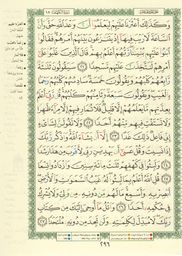 وَكَذَٰلِكَ أَعْثَرْنَا عَلَيْهِمْ لِيَعْلَمُوٓا۟ أَنَّ وَعْدَ ٱللَّهِ حَقٌّ وَأَنَّ
ٱلسَّاعَةَ لَا رَيْبَ فِيهَآ إِذْ يَتَنَٰزَعُونَ بَيْنَهُمْ أَمْرَهُمْ ۖ فَقَالُوا۟
ٱبْنُوا۟ عَلَيْهِم بُنْيَٰنًا ۖ رَّبُّهُمْ أَعْلَمُ بِهِمْ ۚ قَالَ ٱلَّذِينَ غَلَبُوا۟ عَلَىٰٓ
أَمْرِهِمْ لَنَتَّخِذَنَّ عَلَيْهِم مَّسْجِدًا ۝٢١ سَيَقُولُونَ ثَلَٰثَةٌ
رَّابِعُهُمْ كَلْبُهُمْ وَيَقُولُونَ خَمْسَةٌ سَادِسُهُمْ كَلْبُهُمْ رَجْمًۢا
بِٱلْغَيْبِ ۖ وَيَقُولُونَ سَبْعَةٌ وَثَامِنُهُمْ كَلْبُهُمْ ۚ قُل رَّبِّىٓ أَعْلَمُ
بِعِدَّتِهِم مَّا يَعْلَمُهُمْ إِلَّا قَلِيلٌ ۗ فَلَا تُمَارِ فِيهِمْ إِلَّا مِرَآءً ظَٰهِرًا
وَلَا تَسْتَفْتِ فِيهِم مِّنْهُمْ أَحَدًا ۝٢٢ وَلَا تَقُولَنَّ لِشَا۟ىْءٍ
إِنِّى فَاعِلٌ ذَٰلِكَ غَدًا ۝٢٣ إِلَّآ أَن يَشَآءَ ٱللَّهُ ۚ وَٱذْكُر رَّبَّكَ
إِذَا نَسِيتَ وَقُلْ عَسَىٰٓ أَن يَهْدِيَنِ رَبِّى لِأَقْرَبَ مِنْ هَٰذَا رَشَدًا
۝٢٤ وَلَبِثُوا۟ فِى كَهْفِهِمْ ثَلَٰثَ مِا۟ئَةٍ سِنِينَ وَٱزْدَادُوا۟ تِسْعًا
۝٢٥ قُلِ ٱللَّهُ أَعْلَمُ بِمَا لَبِثُوا۟ ۖ لَهُۥ غَيْبُ ٱلسَّمَٰوَٰتِ وَٱلْأَرْضِ ۖ
أَبْصِرْ بِهِۦ وَأَسْمِعْ ۚ مَا لَهُم مِّن دُونِهِۦ مِن وَلِىٍّ وَلَا يُشْرِكُ
فِى حُكْمِهِۦٓ أَحَدًا ۝٢٦ وَٱتْلُ مَآ أُوحِىَ إِلَيْكَ مِن كِتَابِ
رَبِّكَ ۖ لَا مُبَدِّلَ لِكَلِمَٰتِهِۦ وَلَن تَجِدَ مِن دُونِهِۦ مُلْتَحَدًا ۝٢٧
٢٩٦